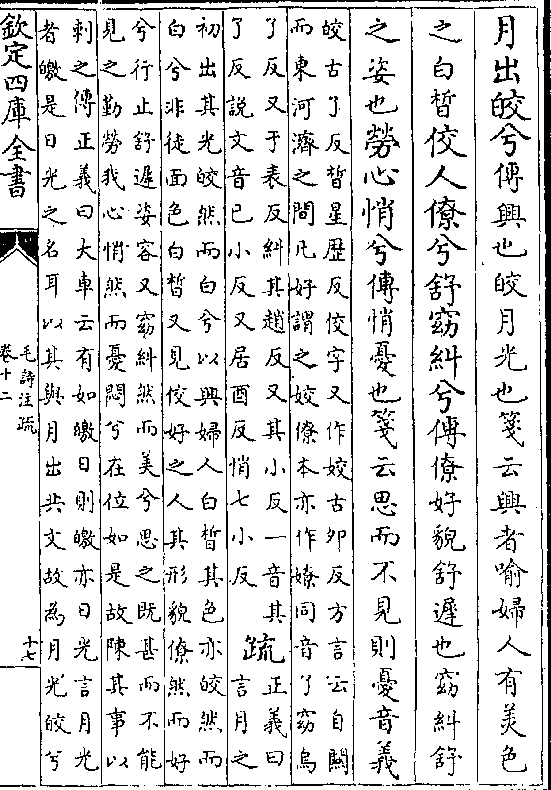 月出皎兮傳興也皎月光也箋云興者喻婦人有美色
之白晳佼人僚兮舒窈糾兮傳僚好貌舒遲也窈糾舒
之姿也勞心悄兮傳悄憂也箋云思而不見則憂音義
皎古了反晳星歴反佼字又作姣古卯反方言云自關
而東河濟之間凡好謂之姣僚本亦作嫽同音了窈烏
了反又于表反糾其趙反又其小反一音其
了反説文音已小反又居酉反悄七小反
疏
正義曰
言月之
初出其光皎然而白兮以興婦人白晳其色亦皎然而
白兮非徒面色白晳又見佼好之人其形貌僚然而好
兮行止舒遲姿容又窈糾然而美兮思之既甚而不能
見之勤勞我心悄然而憂悶兮在位如是故陳其事以
刺之傳正義曰大車云有如皦日則皦亦日光言月光
者皦是日光之名耳以其與月出共文故為月光皎兮
欽定四庫全書
毛詩注疏
卷十二
十七